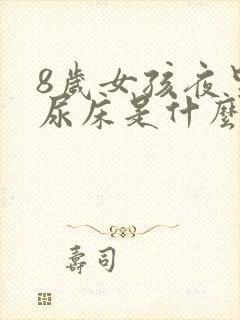 8歲女孩夜
尿床是什麼
壽司